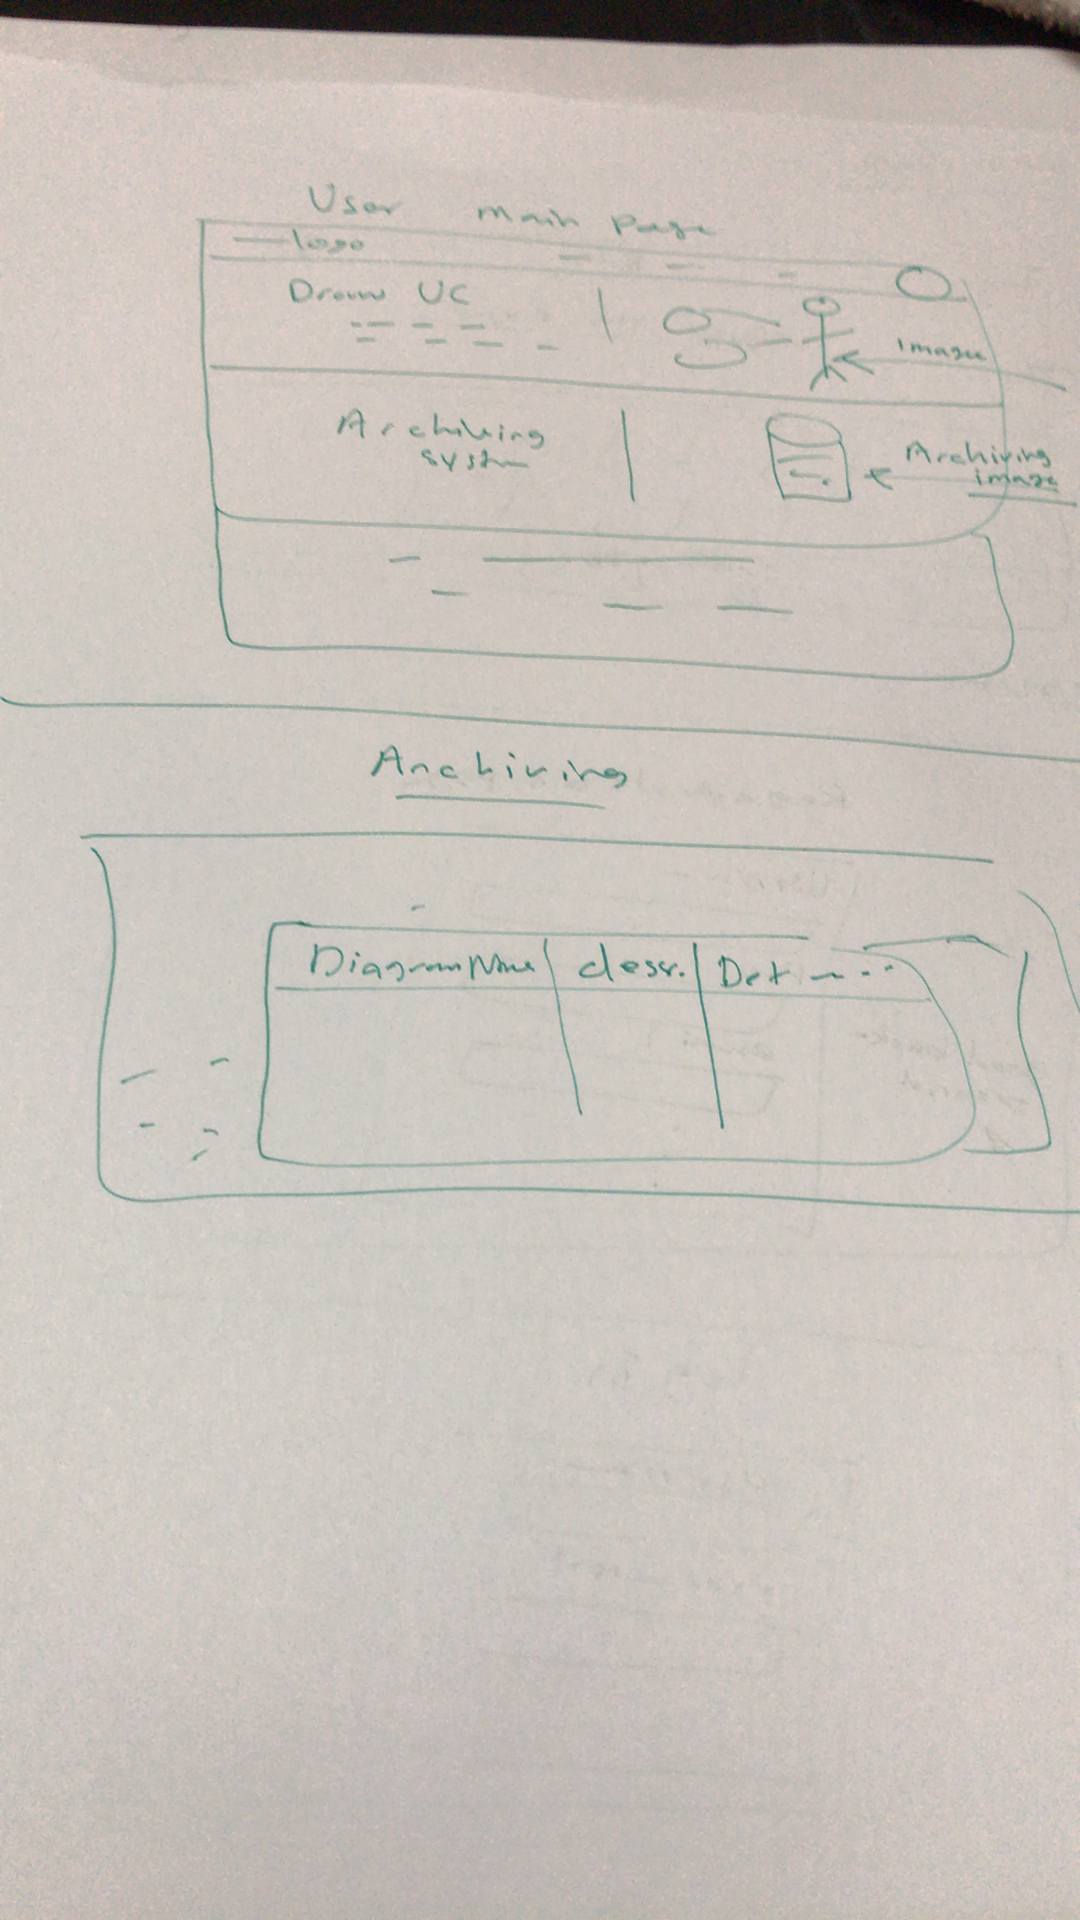 User main page
logo
Draw UC
image
Archiving
system
Archiving
image
Archiving
Diagram Name descr. Det ---